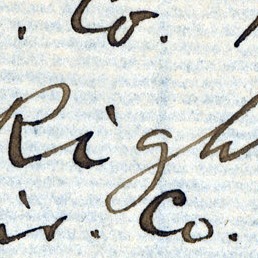 . Co.
Righ
ir. Co.